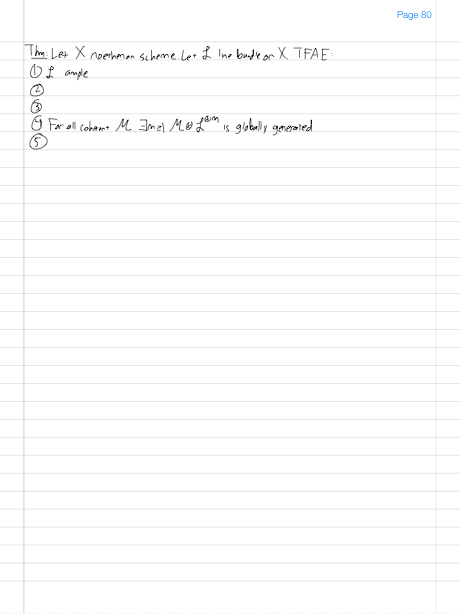 Page 80
Thm: Let X noetherian scheme. Let ℒ line bundle on X TFAE:
① ℒ ample
②
③
④ For all coherent M. ∃m≥1 M⊗ℒ^{⊗m} is globally generated
⑤